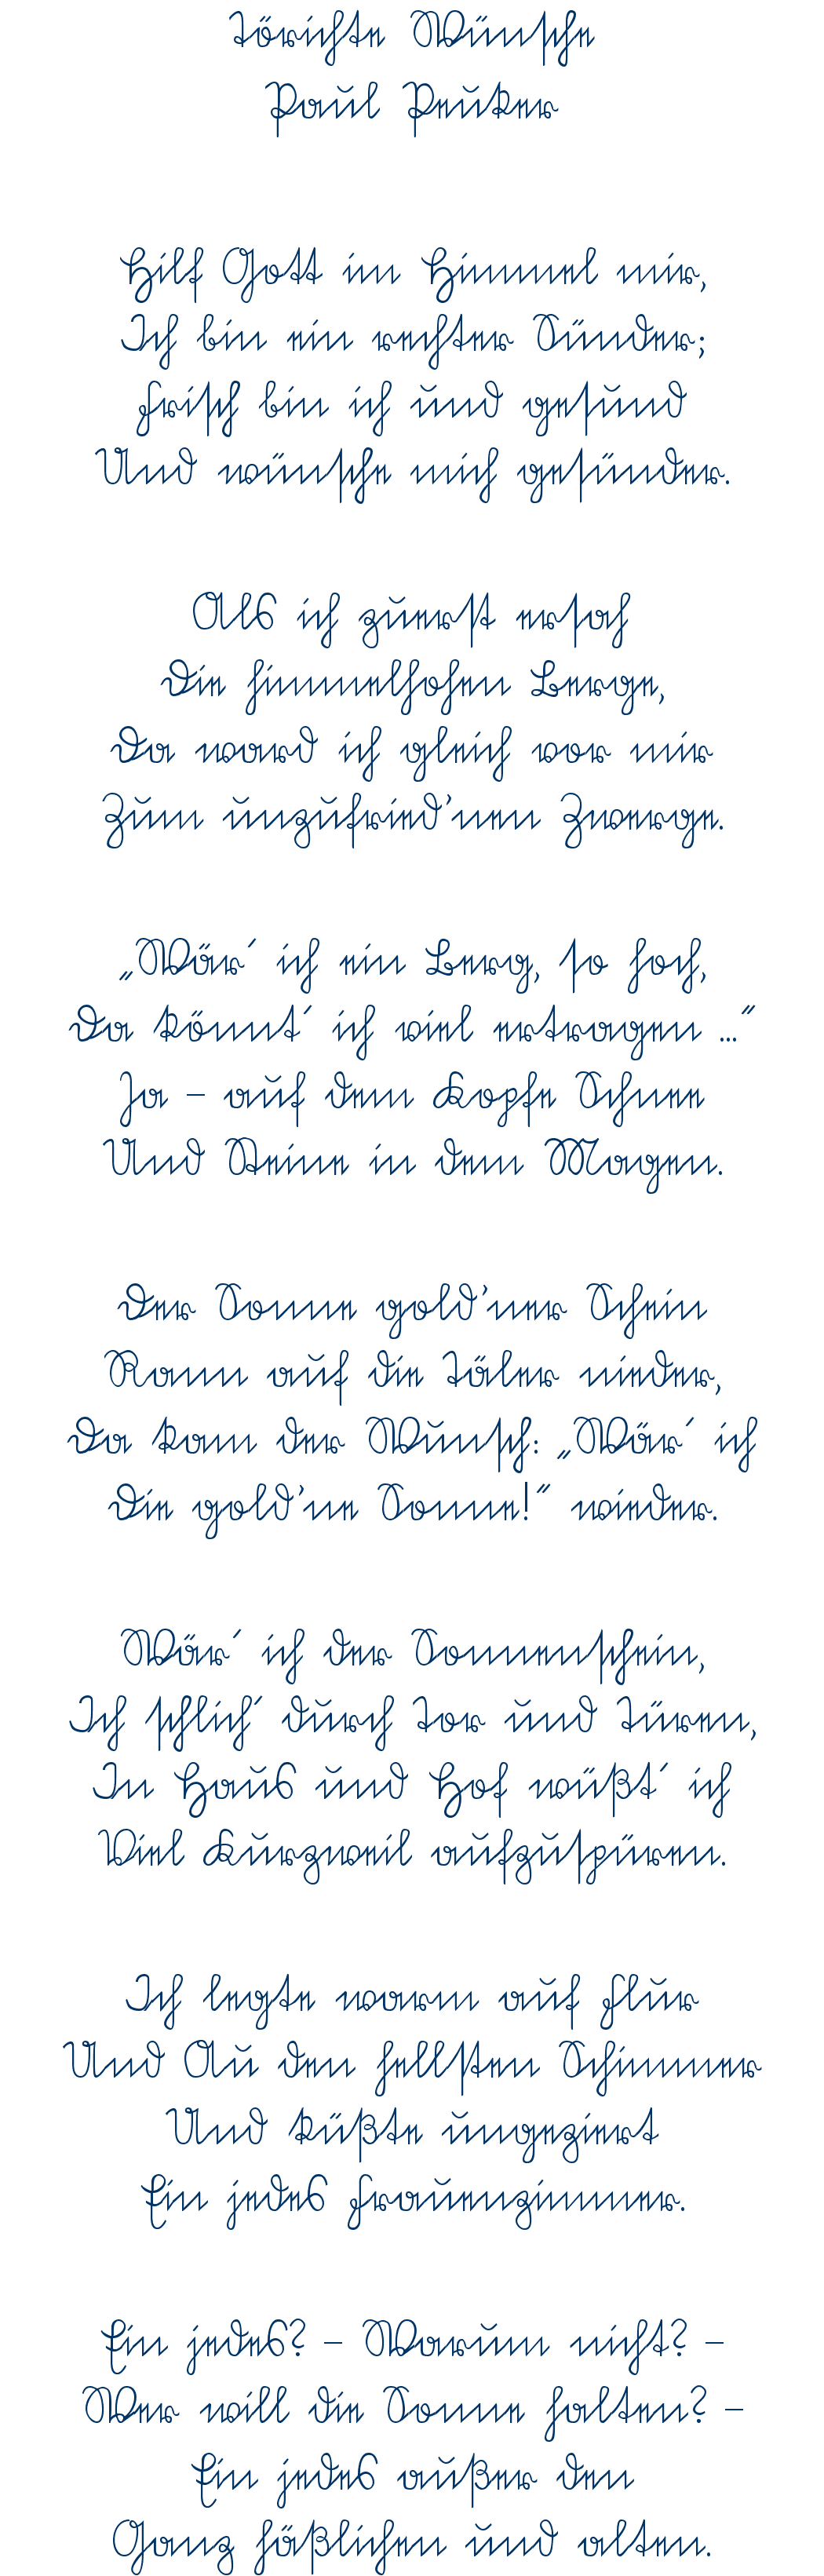 Törichte Wünsche
Paul Peuker
Hilf Gott im Himmel mir,
Ich bin ein rechter Sünder;
Frisch bin ich und gesund
Und wünsche mich gesünder.
Als ich zuerst ersah
Die himmelhohen Berge,
Da ward ich gleich vor mir
Zum unzufried’nen Zwerge.
„Wär´ ich ein Berg, so hoch,
Da könnt´ ich viel ertragen ...“
Ja – auf dem Kopfe Schnee
Und Steine in dem Magen.
Der Sonne gold’ner Schein
Rann auf die Täler nieder,
Da kam der Wunsch: „Wär´ ich
Die gold’ne Sonne!“ wieder.
Wär´ ich der Sonnenschein,
Ich schlich´ durch Tor und Türen,
In Haus und Hof wüßt´ ich
Viel Kurzweil aufzuspüren.
Ich legte warm auf Flur
Und Au den hellsten Schimmer
Und küßte ungeziert
Ein jedes Frauenzimmer.
Ein jedes? – Warum nicht? –
Wer will die Sonne halten? –
Ein jedes außer den
Ganz häßlichen und alten.